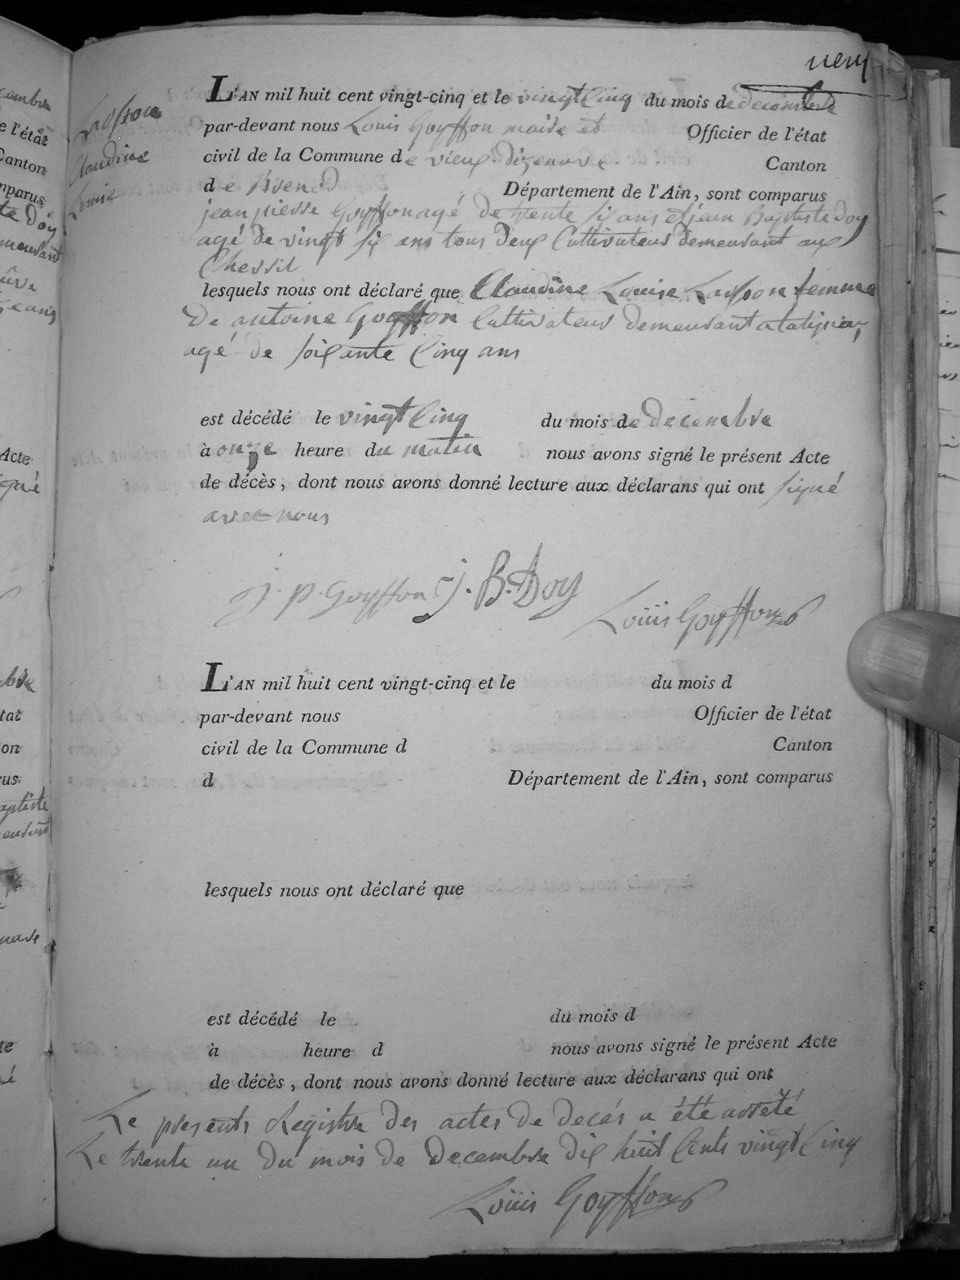 neuf
Lasson
Claudine
Louise
L'AN mil huit cent vingt-cinq et le vingt cinq du mois de decembre
par-devant nous Louis Goyffon maire et Officier de l'état
civil de la Commune de vieux dizenave Canton
de Canton Département de l'Ain, sont comparus
jean pierre Goyffon agé de trente six ans et jean Baptiste Doy
agé de vingt six ans tous deux Cultivateurs demeurant au
Chessit
lesquels nous ont déclaré que Claudine Louise Lasson femme
De antoine Goyffon Cultivateur demeurant
agé de soixante Cinq ans
est décédé le vingt Cinq du mois de decembre
à onze heure du matin nous avons signé le présent Acte
de décès, dont nous avons donné lecture aux déclarans qui ont signé
avec nous
J. P. Goyffon J. B. Doy
Loüis Goyffon
L'AN mil huit cent vingt-cinq et le du mois d
par-devant nous Officier de l'état
civil de la Commune d Canton
d Département de l'Ain, sont comparus
lesquels nous ont déclaré que
est décédé le du mois d
à heure d nous avons signé le présent Acte
de décès, dont nous avons donné lecture aux déclarans qui ont
Le present Registre des actes de decés a été arreté
Le trente un du mois de decembre dix huit Cents vingt Cinq
Loüis Goyffon